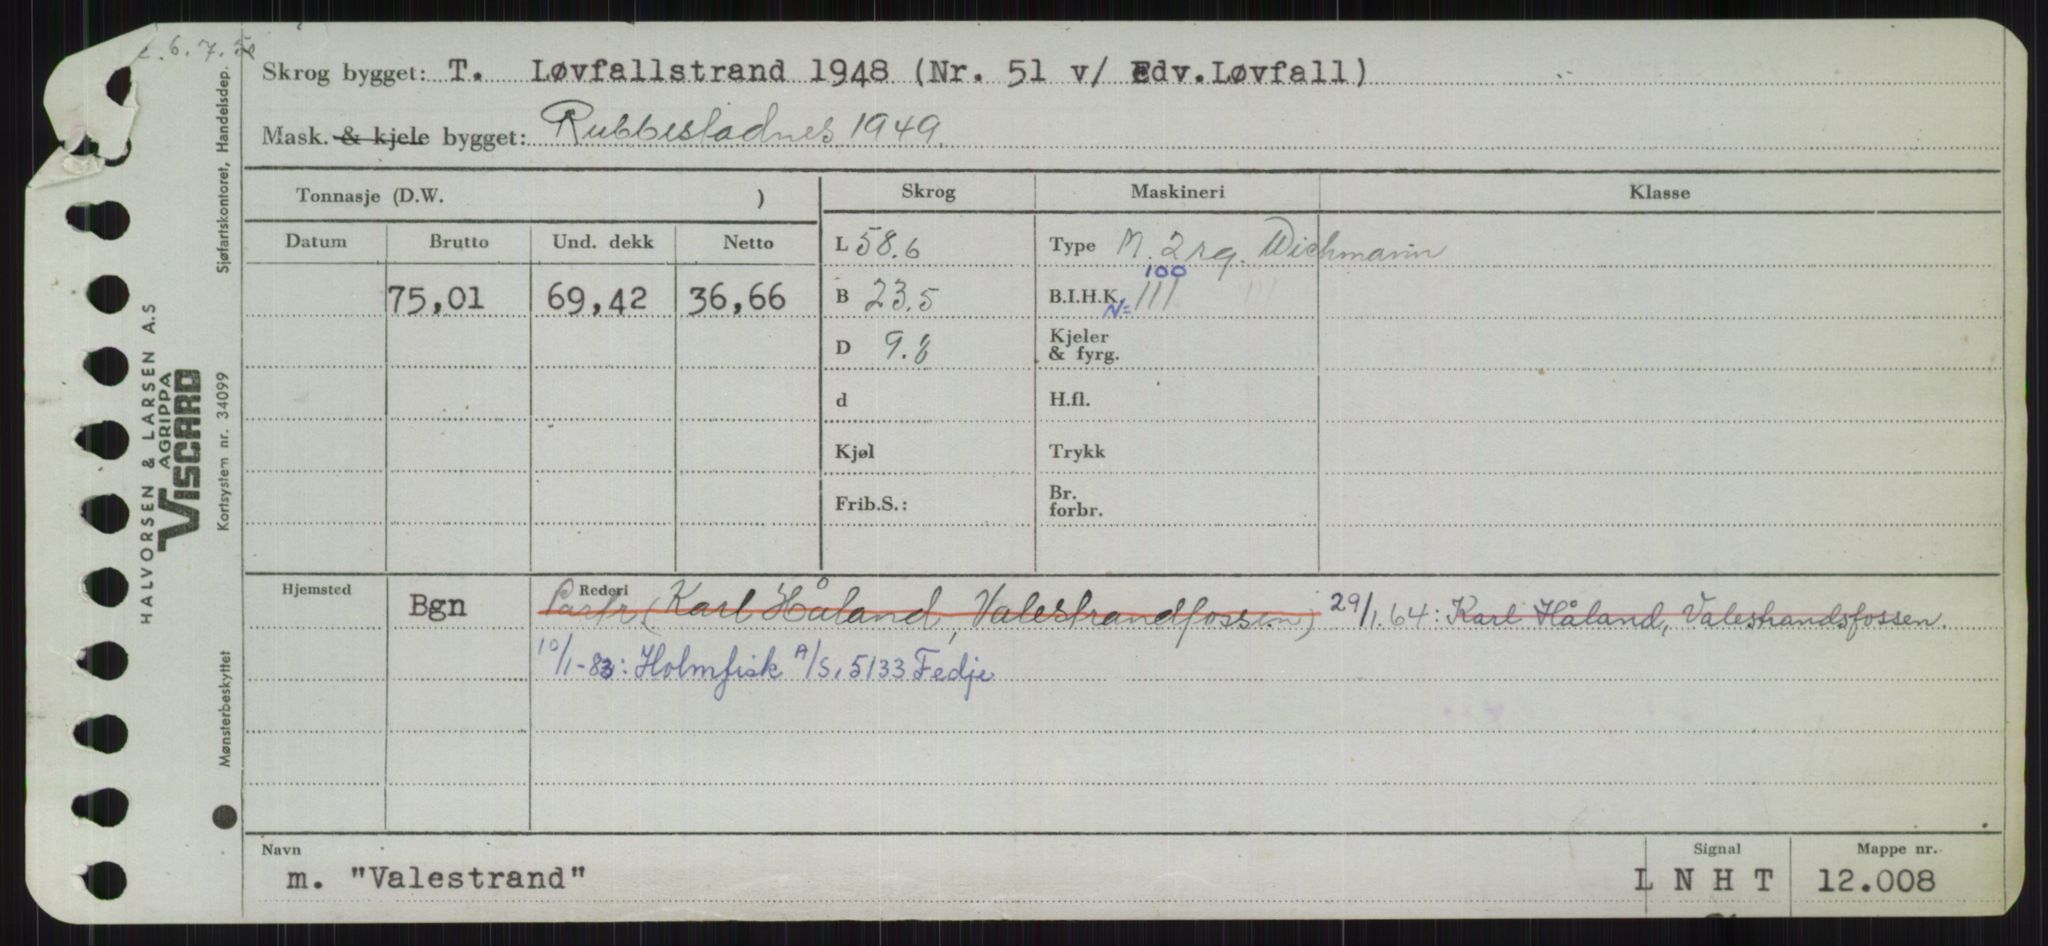 6.7.
Skrog bygget: T. Løvfallstrand 1948 (Nr. 51 v/ Edv.Løvfall)
Mask. & kjele bygget: Rubbestadnes 1949.
Tonnasje (D.W. )
Skrog
Maskineri
Klasse
Datum Brutto Und. dekk Netto
75,01 69,42 36,66
L 58.6
B 23.5
D 9.8
d
Kjøl
Frib.S.:
Type M. 2 sq. Wichmann
100
B.I.H.K. 111
N=
Kjeler
& fyrg.
H.fl.
Trykk
Br.
forbr.
Hjemsted
Bgn
Rederi
Partr. (Karl Håland, Valestrandfossen) 29/1.64: Karl Håland, Valestrandsfossen.
10/1-83: Holmfisk A/S, 5133 Fedje
Navn
m. "Valestrand"
Signal
L N H T
Mappe nr.
12.008
Sjøfartskontoret, Handelsdep.
Kortsystem nr. 34099
Mønsterbeskyttet
HALVORSEN & LARSEN A.S
AGRIPPA
VISCARD